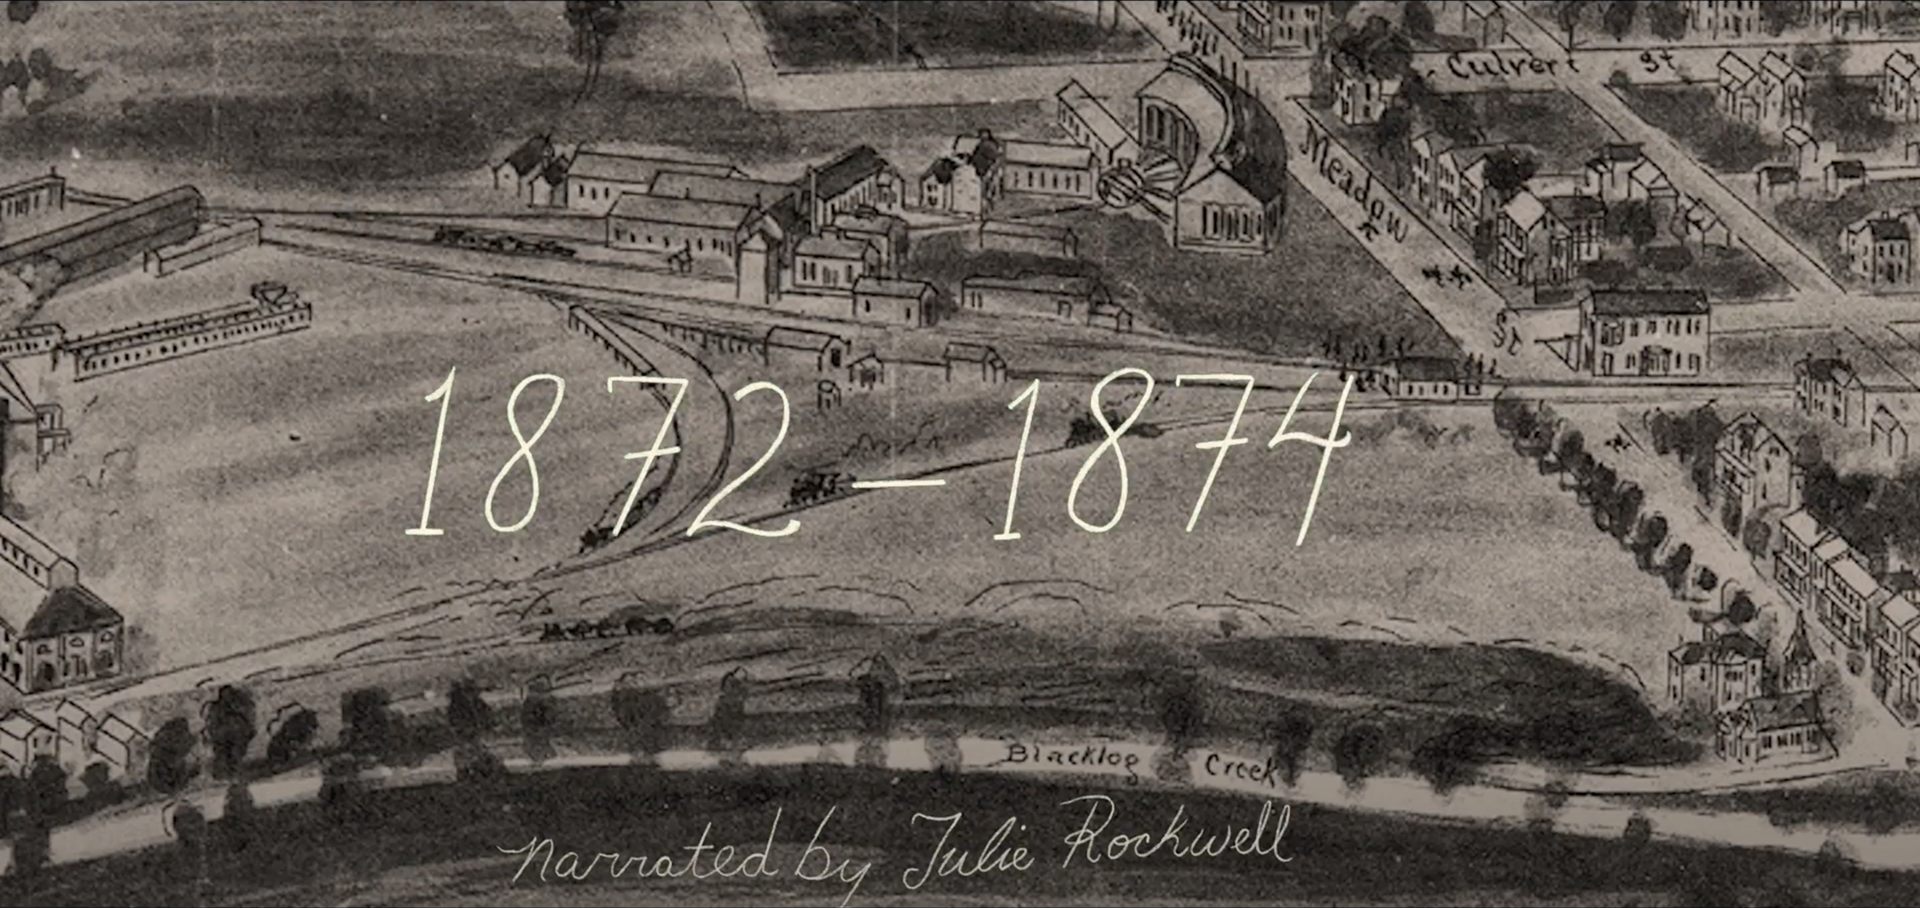 Culvert St
Meadow
St
1872–1874
Blacklog Creek
narrated by Julie Rockwell